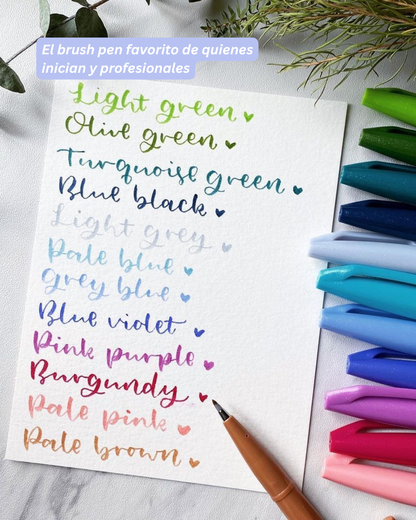 El brush pen favorito de quienes
inician y profesionales
Light green
Olive green
Turquoise green
Blue black
Light grey
Pale blue
Grey blue
Blue violet
Pink purple
Burgundy
Pale pink
Pale brown